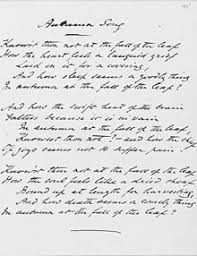 Autumn Song
Know'st thou not at the fall of the leaf
How the heart feels a languid grief
Laid on it for a covering
And how sleep seems a goodly thing
In autumn at the fall of the leaf?
And how the swift beat of the brain
Falters because it is in vain
In autumn at the fall of the leaf
Know'st thou not? — and how the chief
Of joys seems not to suffer pain.
Know'st thou not at the fall of the leaf
How the soul feels like a dried sheaf
Bound up at length for harvesting
And how death seems a comely thing
In autumn at the fall of the leaf?